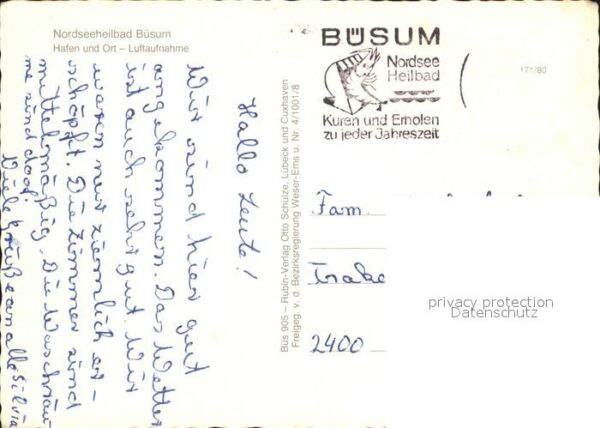 Nordseeheilbad Büsum
Hafen und Ort – Luftaufnahme
Hallo Leute!
Wir sind hier gut
angekommen. Das Wetter
ist auch sehr gut. Wir
waren nur ziemlich er-
schöpft. Die Zimmer sind
mittelmäßig. Die Waschräu-
me sind doof.
Viele Grüße an alle Silvia
Büs 905 – Rubin-Verlag Otto Schulze, Lübeck und Cuxhaven
Freigeg. v. d. Bezirksregierung Weser-Ems u. Nr. 4/1001/8
BÜSUM
Nordsee
Heilbad
Kuren und Erholen
zu jeder Jahreszeit
Fam.
Trake
2400
privacy protection
Datenschutz